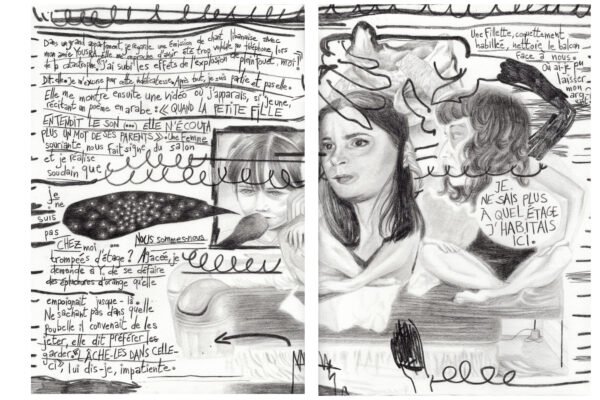 Dans un grand appartement, je regarde une émission de chat libanaise avec
mon amie YOUSRA. Elle me reproche d'avoir été trop           par téléphone, lors
de la catastrophe, j'ai subi les effets de l'explosion de plein fouet, moi!
Dit-elle. Je m'excuse pour cette            . Après tout, je suis partie et pas elle.
Elle me montre ensuite une vidéo où j'apparais, si jeune,
récitant un poème en arabe: « QUAND LA PETITE FILLE
ENTENDIT LE SON (...) ELLE N'ÉCOUTA
PLUS UN MOT DE SES PARENTS ». Une femme
souriante nous fait signe du salon
et je réalise
soudain que
je
ne
suis
pas
CHEZ moi. Nous sommes-nous
trompées d'étage? Agacée, je
demande à Y. de se défaire
des épluchures d'orange qu'elle
empoignait jusque-là.
Ne sachant pas dans quelle
poubelle il convenait de les
jeter, elle dit préférer les
garder. « LÂCHE-LES DANS CELLE-
CI », lui dis-je, impatiente.
Une fillette, coquettement
habillée, nettoie le balcon
face à nous.
Où ai-je pu
laisser
mon
JE
NE SAIS PLUS
À QUEL ÉTAGE
J'HABITAIS
ICI.